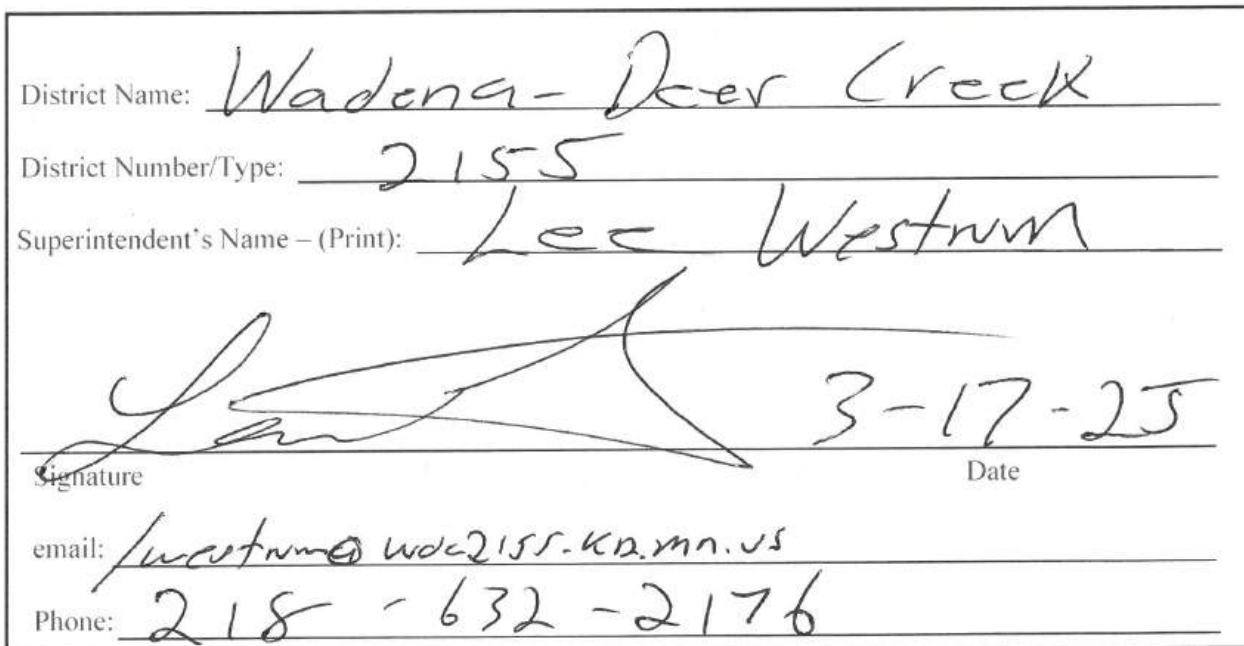 District Name: Wadena - Deer Creek
District Number/Type: 2155
Superintendent's Name – (Print): Lee Westrum
3-17-25
Signature Date
email: lwestrum@wdc2155.k12.mn.us
Phone: 218 - 632 - 2176